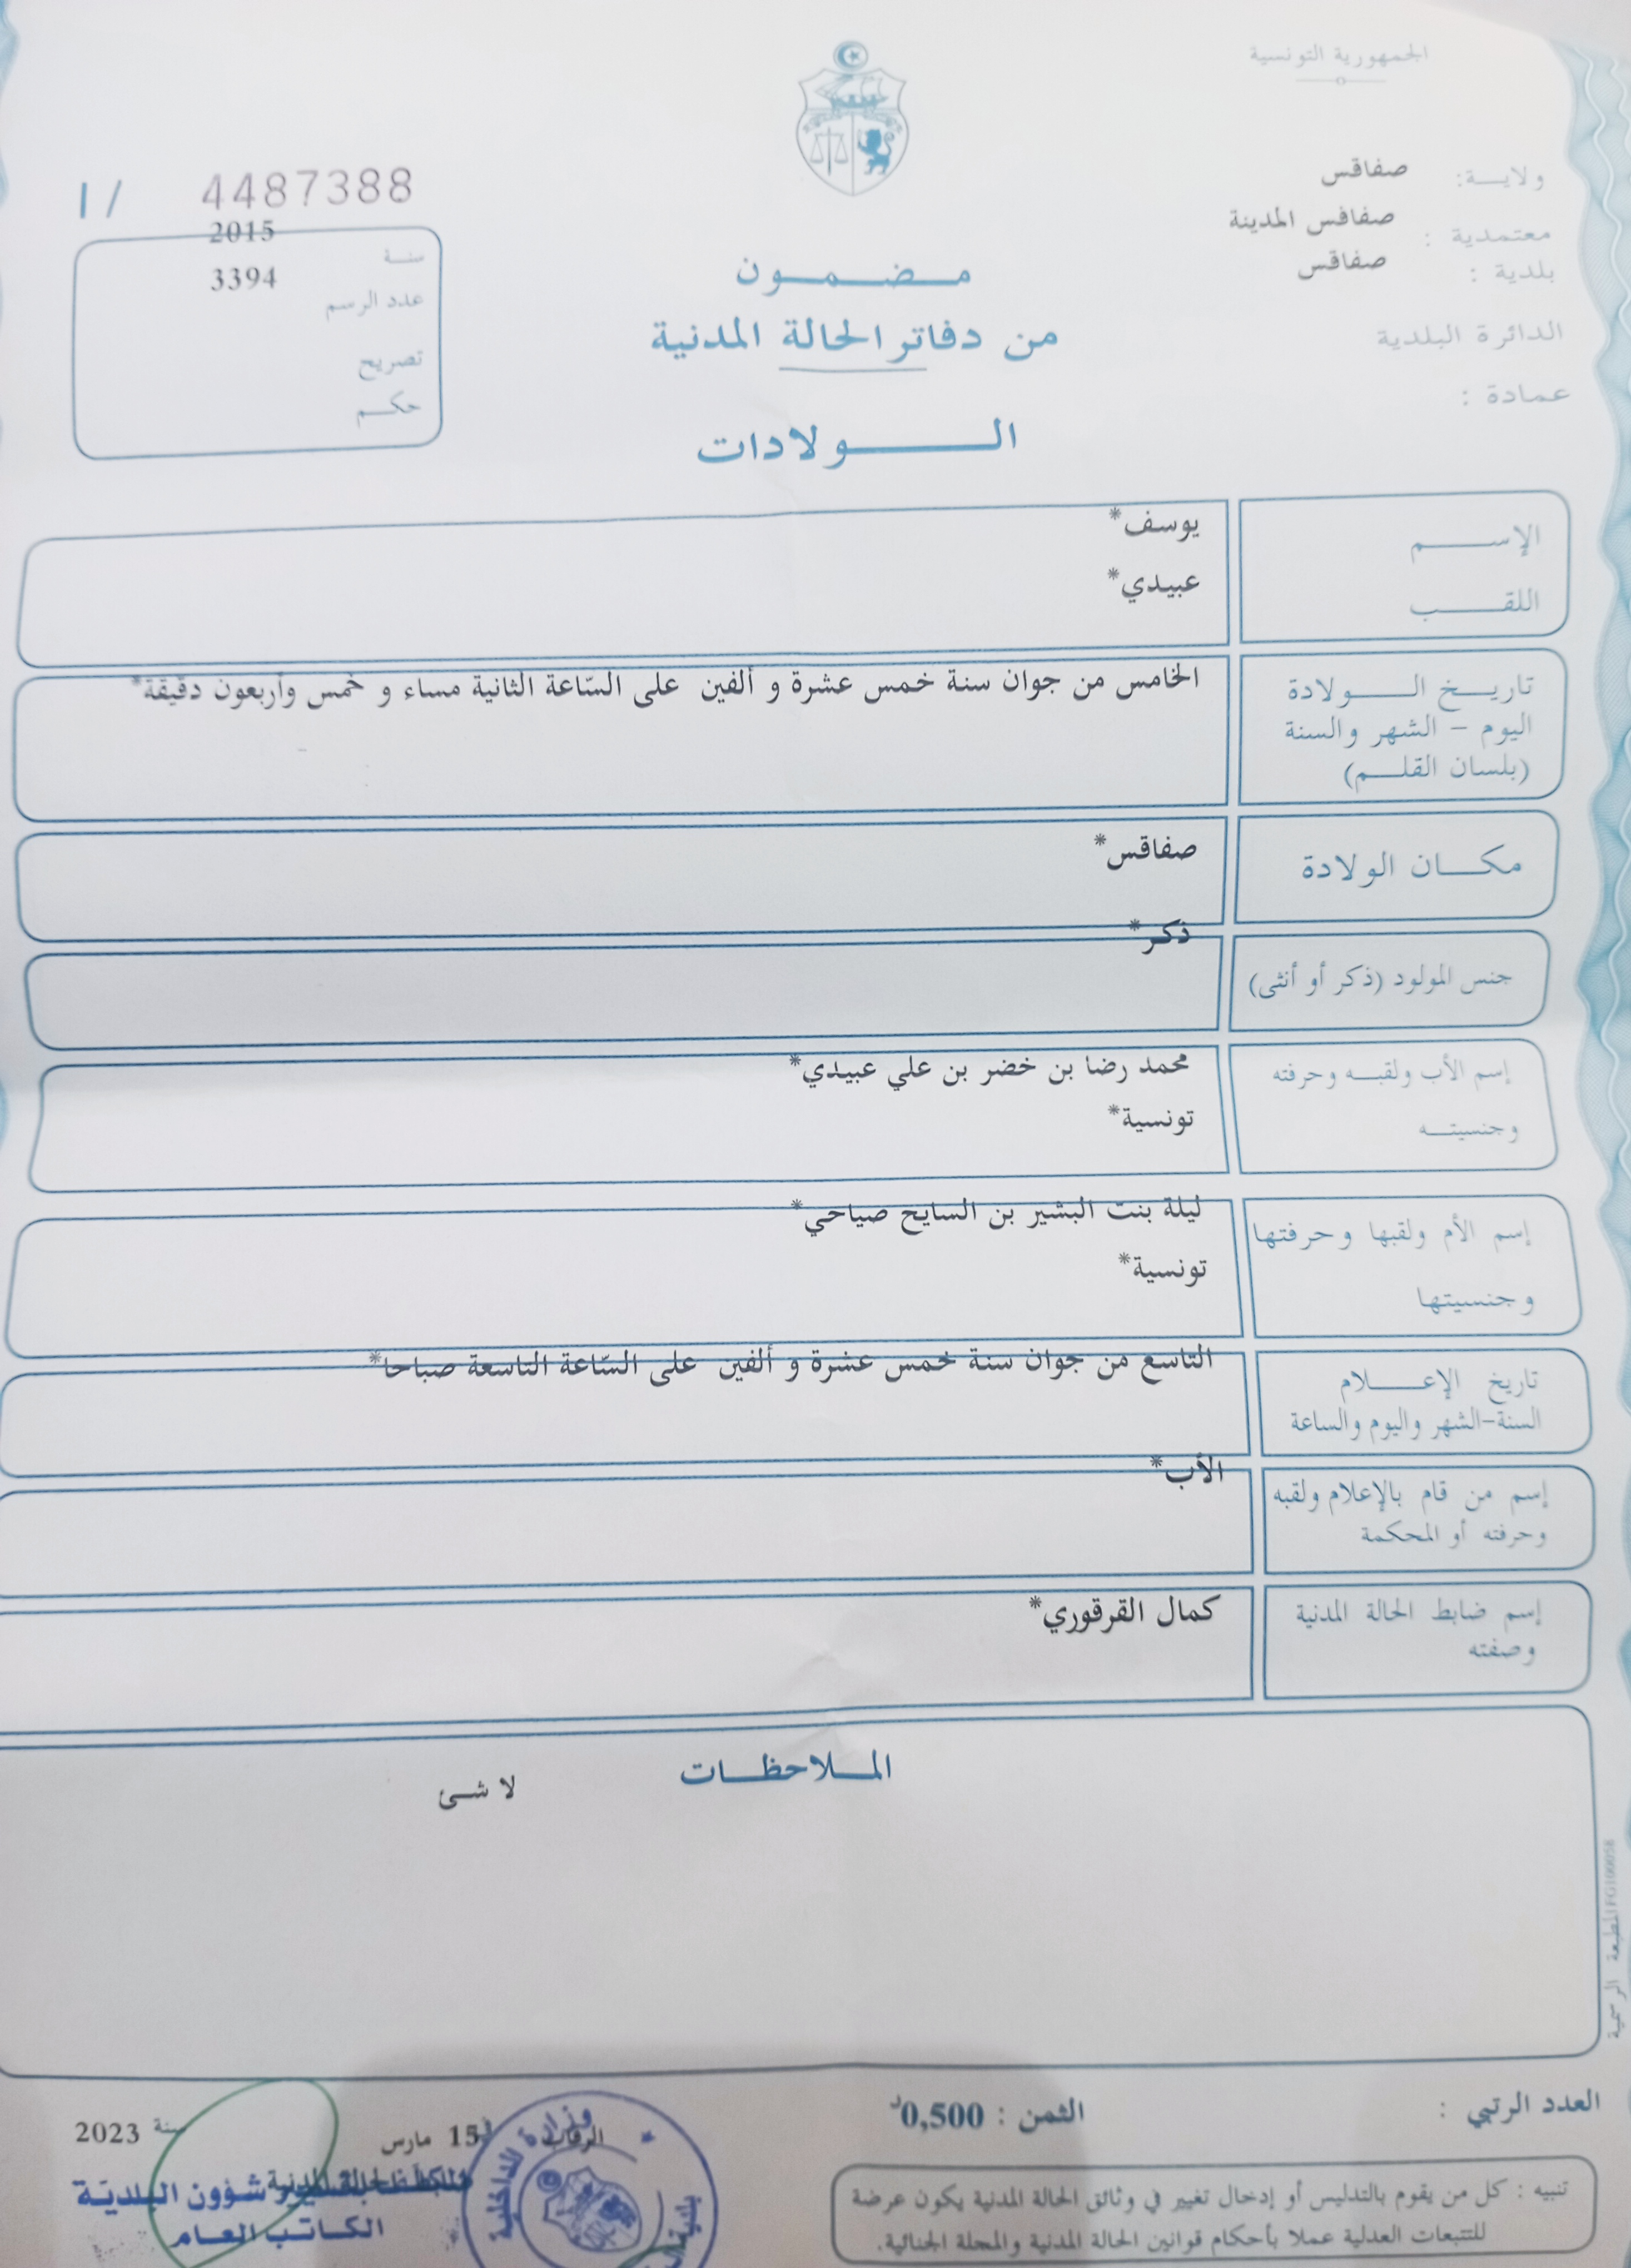 الجمهورية التونسية
ولايـــة: صفاقس
معتمدية : صفاقس المدينة
بلدية : صفاقس
الدائرة البلدية
عمادة :
1 / 4487388
سنـة 2015
عدد الرسم 3394
تصريح
حكـــم
مــضـــمـــون
من دفاتر الحالة المدنية
الـــــــولادات
الإســـــم يوسف*
اللقـــــب عبيدي*
تاريـــخ الـــــولادة الخامس من جوان سنة خمس عشرة و ألفين على السّاعة الثانية مساء و خمس وأربعون دقيقة*
اليوم – الشهر والسنة
(بلسان القلـــم)
مكـــان الولادة صفاقس*
جنس المولود (ذكر أو أنثى) ذكر*
إسم الأب ولقبـــه وحرفته محمد رضا بن خضر بن علي عبيدي*
وجنسيتـــه تونسية*
إسم الأم ولقبها وحرفتها ليلة بنت البشير بن السايح صياحي*
وجنسيتها تونسية*
تاريخ الإعـــــلام التاسع من جوان سنة خمس عشرة و ألفين على السّاعة التاسعة صباحا*
السنة-الشهر واليوم والساعة
إسم من قام بالإعلام ولقبه الأب*
وحرفته أو المحكمة
إسم ضابط الحالة المدنية كمال القرقوري*
وصفته
المـــلاحظـــات
لا شىء
المطبعة الرسمية FG100058
العدد الرتبي :
الثمن : 0,500د
الرقاب في 15 مارس سنة 2023
وزارة الداخلية
شؤون البلديّة
الكاتب العام
تنبيه : كل من يقوم بالتدليس أو إدخال تغيير في وثائق الحالة المدنية يكون عرضة
للتتبعات العدلية عملا بأحكام قوانين الحالة المدنية والمجلة الجنائية.